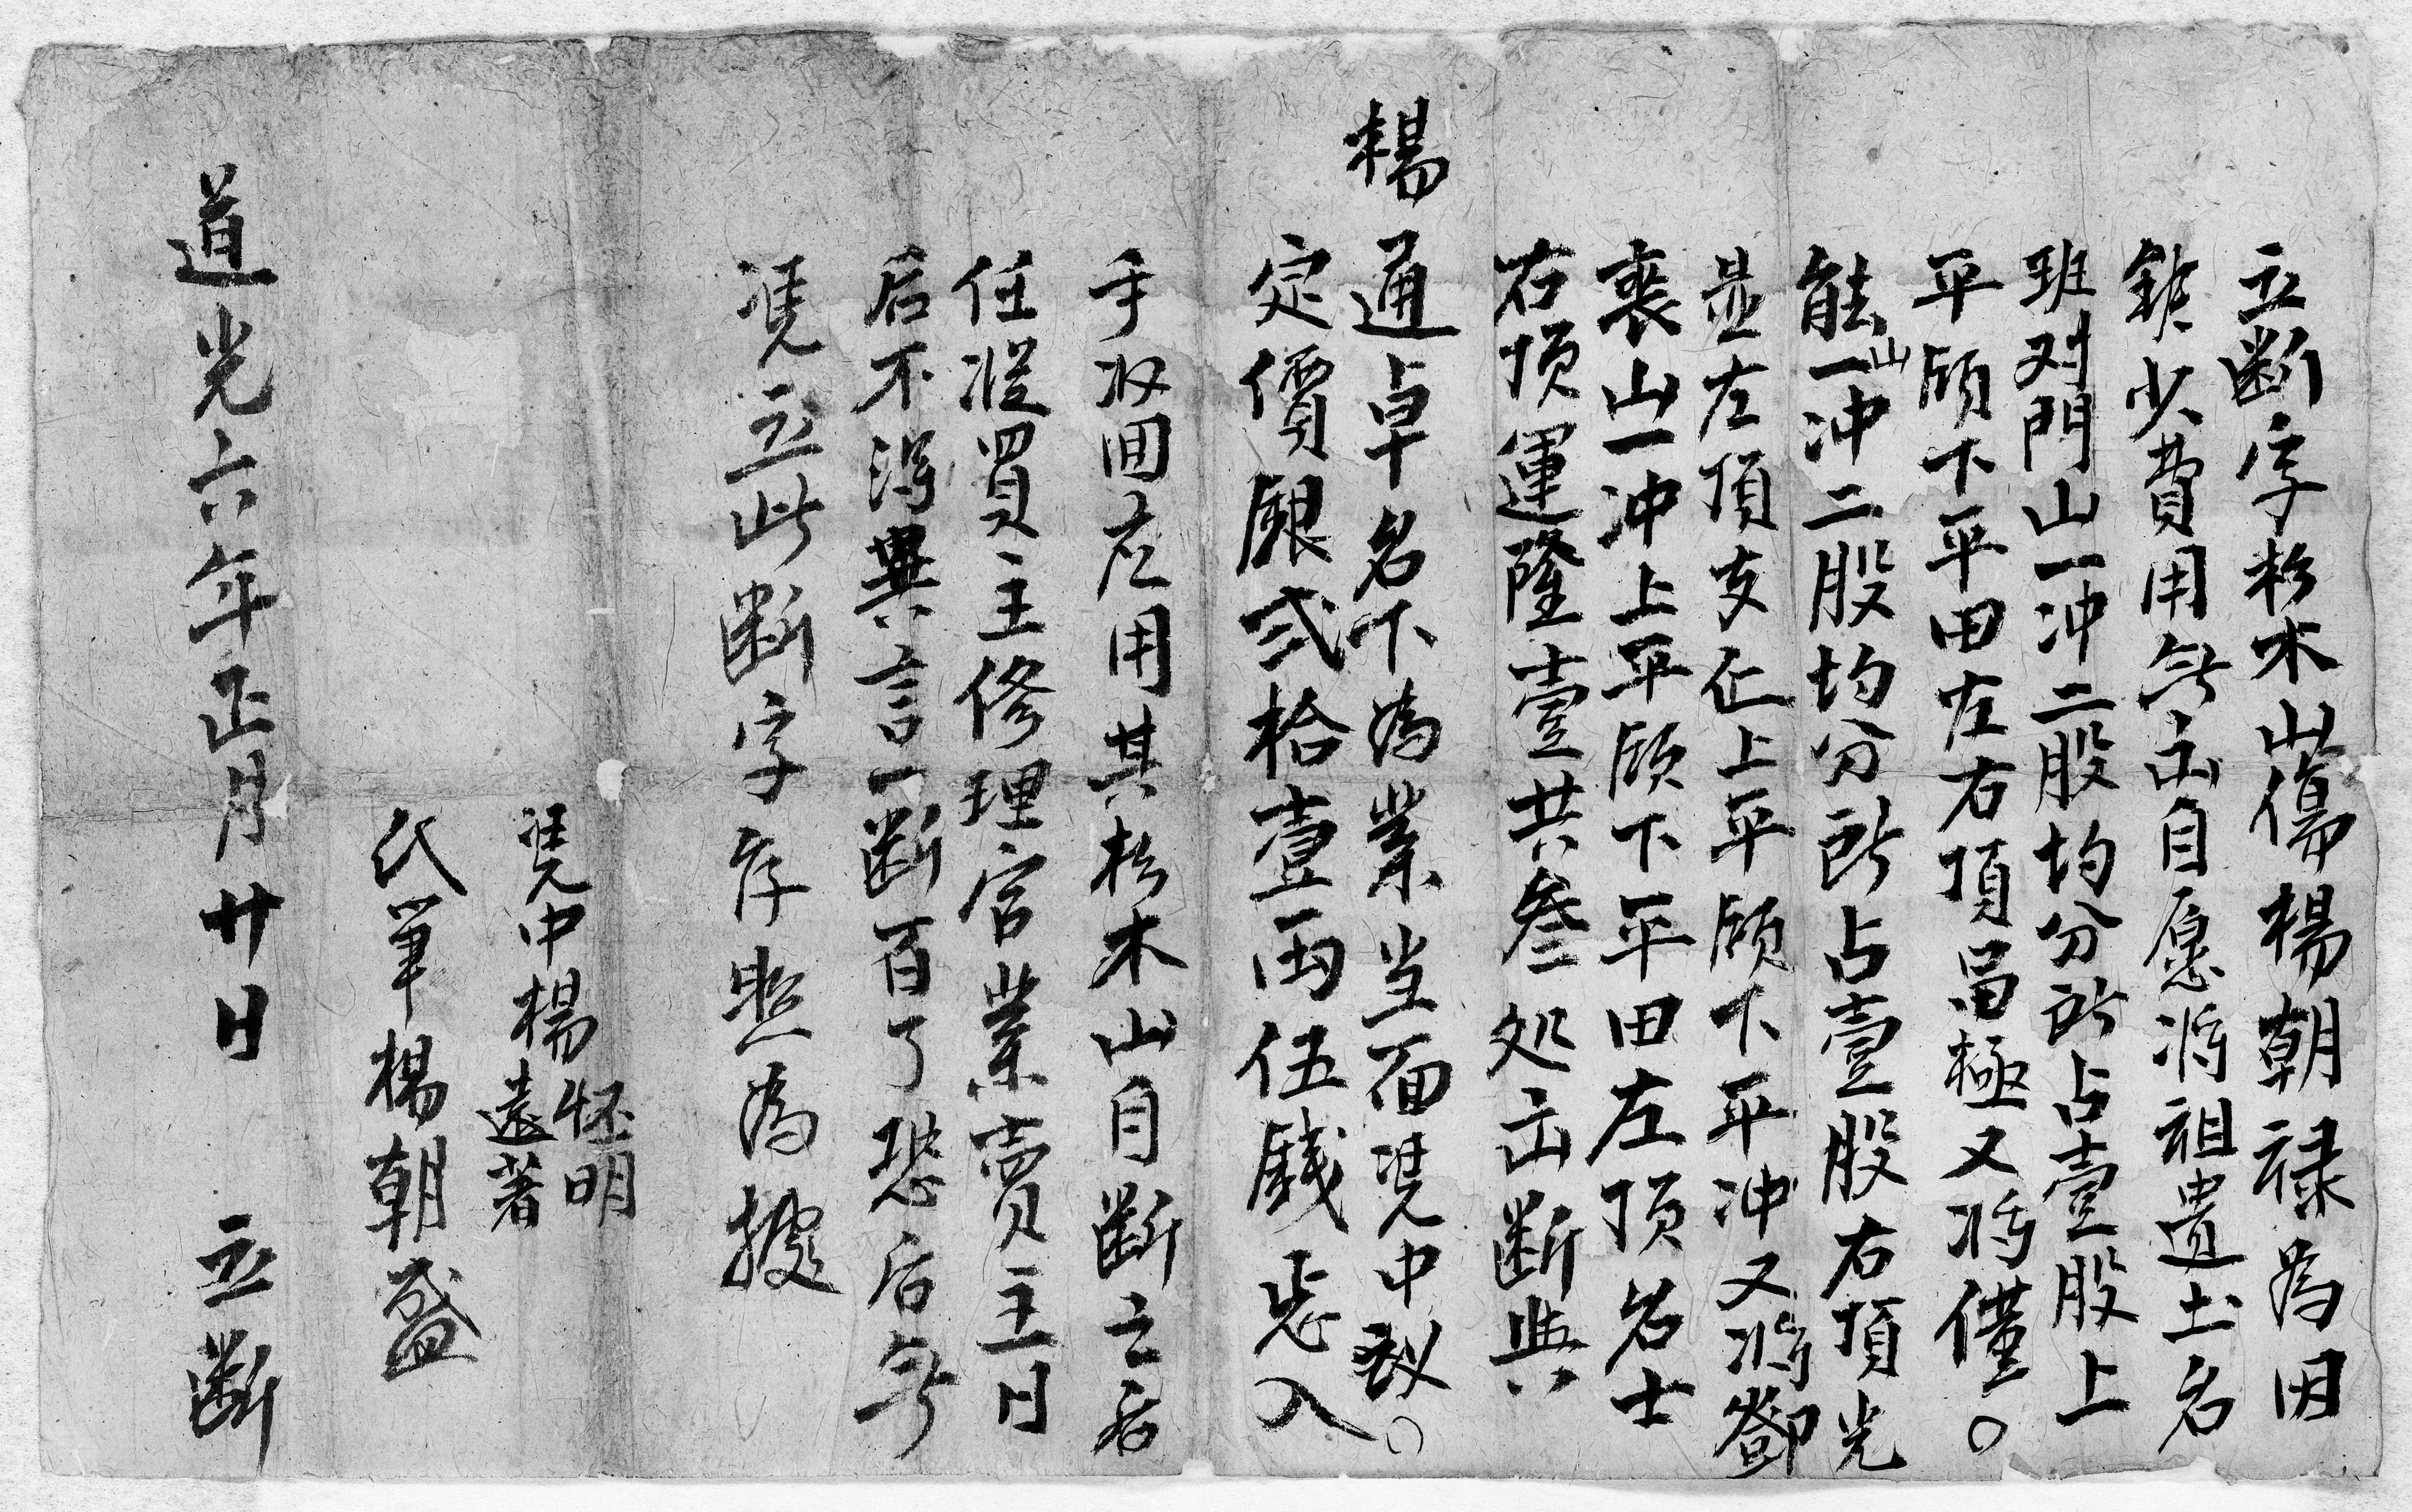 立断字杉木山塲楊朝禄為因
銀少費用無出自愿將祖遺土名
班对門山一冲二股均分所占壹股上
平頋下平田左右頂昌極又將僅○
能山一冲二股均分所占壹股右頂光
显左頂支仁上平頋下平冲又將鄧
裹山一冲上平頋下平田左頂名士
右頂運隆壹共叁处出断與
楊通卓名下為業当面凴中議○
定價銀弍拾壹両伍錢㤀入
手収囬应用其杉木山自断之后
任從買主修理管業賣主日
后不得異言一断百了恐后無
凴立此断字存照為據
凴中楊怌明
遠著
代筆楊朝盛
道光六年正月廿日 立断